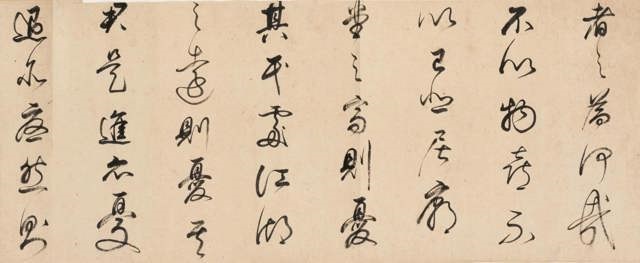 者之為何哉
不以物喜不
以己悲居廟
堂之高則憂
其民處江湖
之遠則憂其
君是進亦憂
退亦憂然則